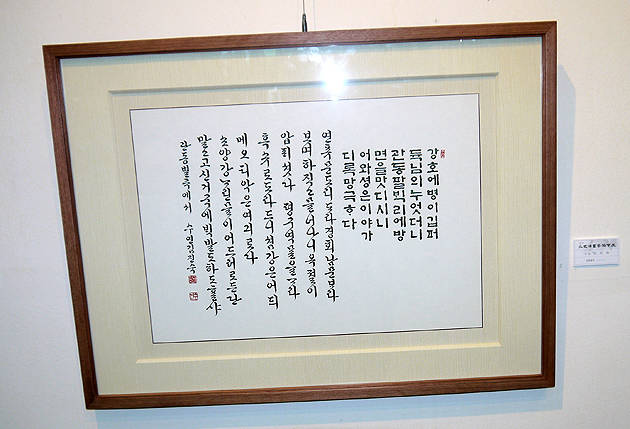 강호에병이깁퍼
듁님의누엇더니
관동팔빅리에방
면을맛디시니
어와셩은이야가
디록망극ᄒᆞ다
연츄문드리ᄃᆞ라경회남문ᄇᆞ라
보며하직고믈너나니옥졀이
알ᄑᆡ셧다 평구역ᄆᆞᆯ을ᄀᆞ라
흑슈로도라드니셤강은어듸
메오 티악은여긔로다
쇼양강ᄂᆞ린믈이어드러로든단
말고고신거국에빅발도하도할샤
관동별곡에서